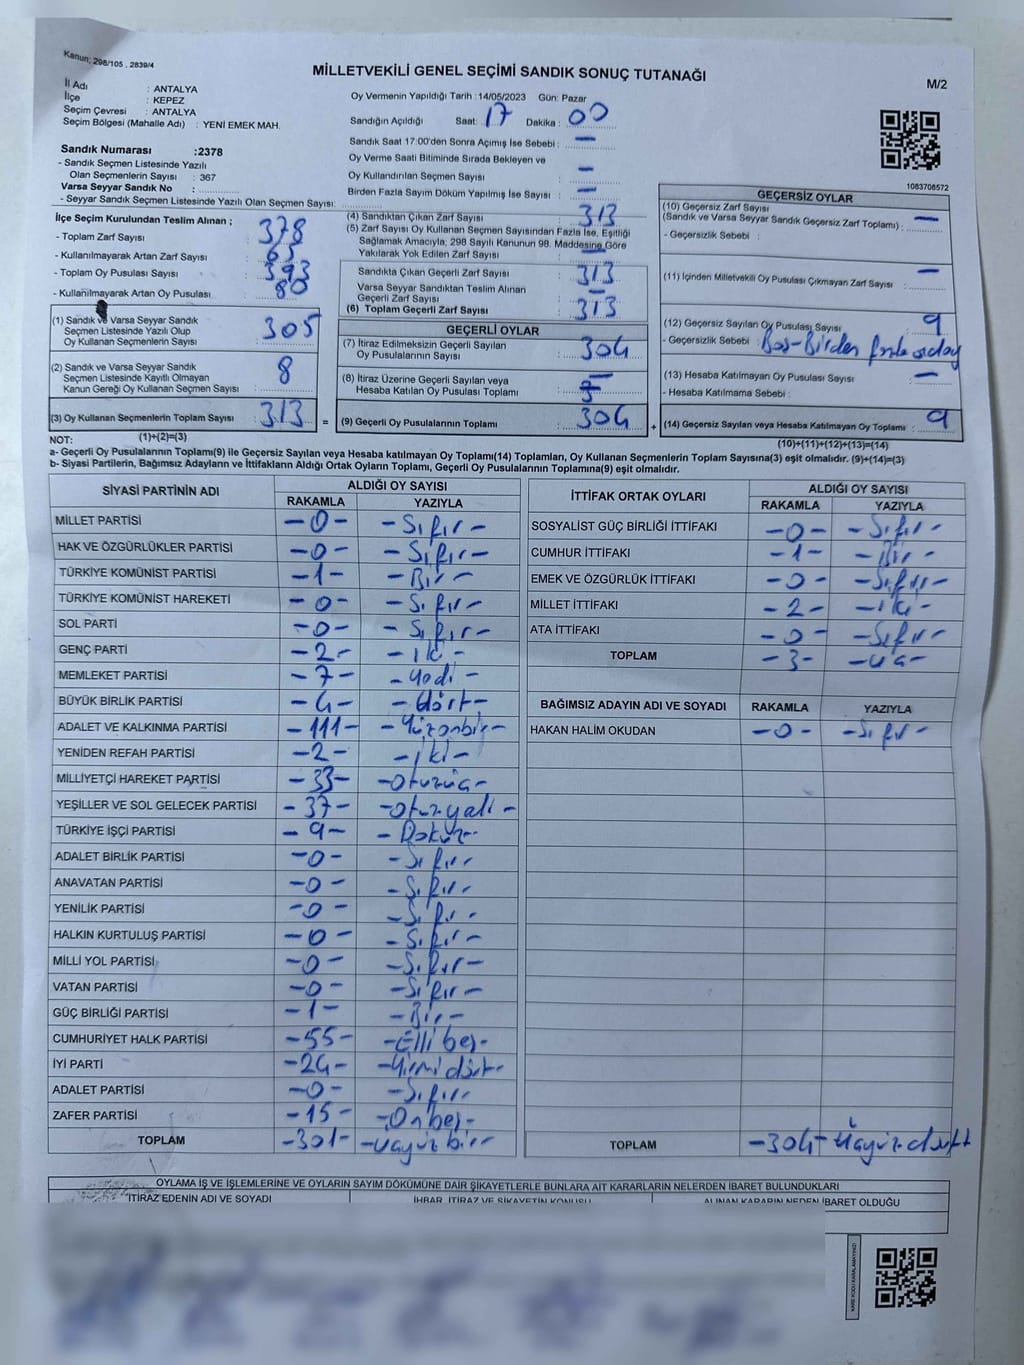 Kanun; 298/105 , 2839/4
MİLLETVEKİLİ GENEL SEÇİMİ SANDIK SONUÇ TUTANAĞI
M/2
İl Adı : ANTALYA
İlçe : KEPEZ
Seçim Çevresi : ANTALYA
Seçim Bölgesi (Mahalle Adı) : YENİ EMEK MAH.
Sandık Numarası :2378
- Sandık Seçmen Listesinde Yazılı
Olan Seçmenlerin Sayısı : 367
Varsa Seyyar Sandık No :
- Seyyar Sandık Seçmen Listesinde Yazılı Olan Seçmen Sayısı:
Oy Vermenin Yapıldığı Tarih :14/05/2023 Gün: Pazar
Sandığın Açıldığı Saat: 17 Dakika : 00
Sandık Saat 17:00'den Sonra Açımış İse Sebebi : —
Oy Verme Saati Bitiminde Sırada Bekleyen ve
Oy Kullandırılan Seçmen Sayısı : —
Birden Fazla Sayım Döküm Yapılmış İse Sayısı : —
1083708572
İlçe Seçim Kurulundan Teslim Alınan ;
- Toplam Zarf Sayısı : 378
- Kullanılmayarak Artan Zarf Sayısı : 65
- Toplam Oy Pusulası Sayısı : 393
- Kullanılmayarak Artan Oy Pusulası : 80
(1) Sandık ve Varsa Seyyar Sandık
Seçmen Listesinde Yazılı Olup
Oy Kullanan Seçmenlerin Sayısı : 305
(2) Sandık ve Varsa Seyyar Sandık
Seçmen Listesinde Kayıtlı Olmayan
Kanun Gereği Oy Kullanan Seçmen Sayısı : 8
(3) Oy Kullanan Seçmenlerin Toplam Sayısı : 313
(1)+(2)=(3)
(4) Sandıktan Çıkan Zarf Sayısı : 313
(5) Zarf Sayısı Oy Kullanan Seçmen Sayısından Fazla İse, Eşitliği
Sağlamak Amacıyla, 298 Sayılı Kanunun 98. Maddesine Göre
Yakılarak Yok Edilen Zarf Sayısı : —
Sandıkta Çıkan Geçerli Zarf Sayısı : 313
Varsa Seyyar Sandıktan Teslim Alınan
Geçerli Zarf Sayısı : —
(6) Toplam Geçerli Zarf Sayısı : 313
GEÇERLİ OYLAR
(7) İtiraz Edilmeksizin Geçerli Sayılan
Oy Pusulalarının Sayısı : 304
(8) İtiraz Üzerine Geçerli Sayılan veya
Hesaba Katılan Oy Pusulası Toplamı :
= (9) Geçerli Oy Pusulalarının Toplamı : 304 +
GEÇERSİZ OYLAR
(10) Geçersiz Zarf Sayısı
(Sandık ve Varsa Seyyar Sandık Geçersiz Zarf Toplamı) : —
- Geçersizlik Sebebi :
(11) İçinden Milletvekili Oy Pusulası Çıkmayan Zarf Sayısı : —
(12) Geçersiz Sayılan Oy Pusulası Sayısı : 9
- Geçersizlik Sebebi : Boş-Birden fazla
(13) Hesaba Katılmayan Oy Pusulası Sayısı : —
- Hesaba Katılmama Sebebi :
(14) Geçersiz Sayılan veya Hesaba Katılmayan Oy Toplamı : 9
(10)+(11)+(12)+(13)=(14)
NOT:
a- Geçerli Oy Pusulalarının Toplamı(9) ile Geçersiz Sayılan veya Hesaba katılmayan Oy Toplamı(14) Toplamları, Oy Kullanan Seçmenlerin Toplam Sayısına(3) eşit olmalıdır. (9)+(14)=(3)
b- Siyasi Partilerin, Bağımsız Adayların ve İttifakların Aldığı Ortak Oyların Toplamı, Geçerli Oy Pusulalarının Toplamına(9) eşit olmalıdır.
SİYASİ PARTİNİN ADI ALDIĞI OY SAYISI
RAKAMLA YAZIYLA
MİLLET PARTİSİ -0- -Sıfır-
HAK VE ÖZGÜRLÜKLER PARTİSİ -0- -Sıfır-
TÜRKİYE KOMÜNİST PARTİSİ -1- -Bir-
TÜRKİYE KOMÜNİST HAREKETİ -0- -Sıfır-
SOL PARTİ -0- -Sıfır-
GENÇ PARTİ -2- -iki-
MEMLEKET PARTİSİ -7- -Yedi-
BÜYÜK BİRLİK PARTİSİ -4- -dört-
ADALET VE KALKINMA PARTİSİ -111- -Yüzonbir-
YENİDEN REFAH PARTİSİ -2- -iki-
MİLLİYETÇİ HAREKET PARTİSİ -33- -Otuzüç-
YEŞİLLER VE SOL GELECEK PARTİSİ -37- -Otuzyedi-
TÜRKİYE İŞÇİ PARTİSİ -9- -Dokuz-
ADALET BİRLİK PARTİSİ -0- -Sıfır-
ANAVATAN PARTİSİ -0- -Sıfır-
YENİLİK PARTİSİ -0- -Sıfır-
HALKIN KURTULUŞ PARTİSİ -0- -Sıfır-
MİLLİ YOL PARTİSİ -0- -Sıfır-
VATAN PARTİSİ -0- -Sıfır-
GÜÇ BİRLİĞİ PARTİSİ -1- -Bir-
CUMHURİYET HALK PARTİSİ -55- -Elli beş-
İYİ PARTİ -24- -Yirmi dört-
ADALET PARTİSİ -0- -Sıfır-
ZAFER PARTİSİ -15- -On beş-
TOPLAM -301- -üçyüz bir-
İTTİFAK ORTAK OYLARI ALDIĞI OY SAYISI
RAKAMLA YAZIYLA
SOSYALİST GÜÇ BİRLİĞİ İTTİFAKI -0- -Sıfır-
CUMHUR İTTİFAKI -1- -Bir-
EMEK VE ÖZGÜRLÜK İTTİFAKI -0- -Sıfır-
MİLLET İTTİFAKI -2- -iki-
ATA İTTİFAKI -0- -Sıfır-
TOPLAM -3- -üç-
BAĞIMSIZ ADAYIN ADI VE SOYADI RAKAMLA YAZIYLA
HAKAN HALİM OKUDAN -0- -Sıfır-
TOPLAM -304- üçyüz dört
OYLAMA İŞ VE İŞLEMLERİNE VE OYLARIN SAYIM DÖKÜMÜNE DAİR ŞİKAYETLERLE BUNLARA AİT KARARLARIN NELERDEN İBARET BULUNDUKLARI
İTİRAZ EDENİN ADI VE SOYADI İHBAR, İTİRAZ VE ŞİKAYETİN KONUSU ALINAN KARARIN NEDEN İBARET OLDUĞU
KARE KODU KARALAMAYINIZ!